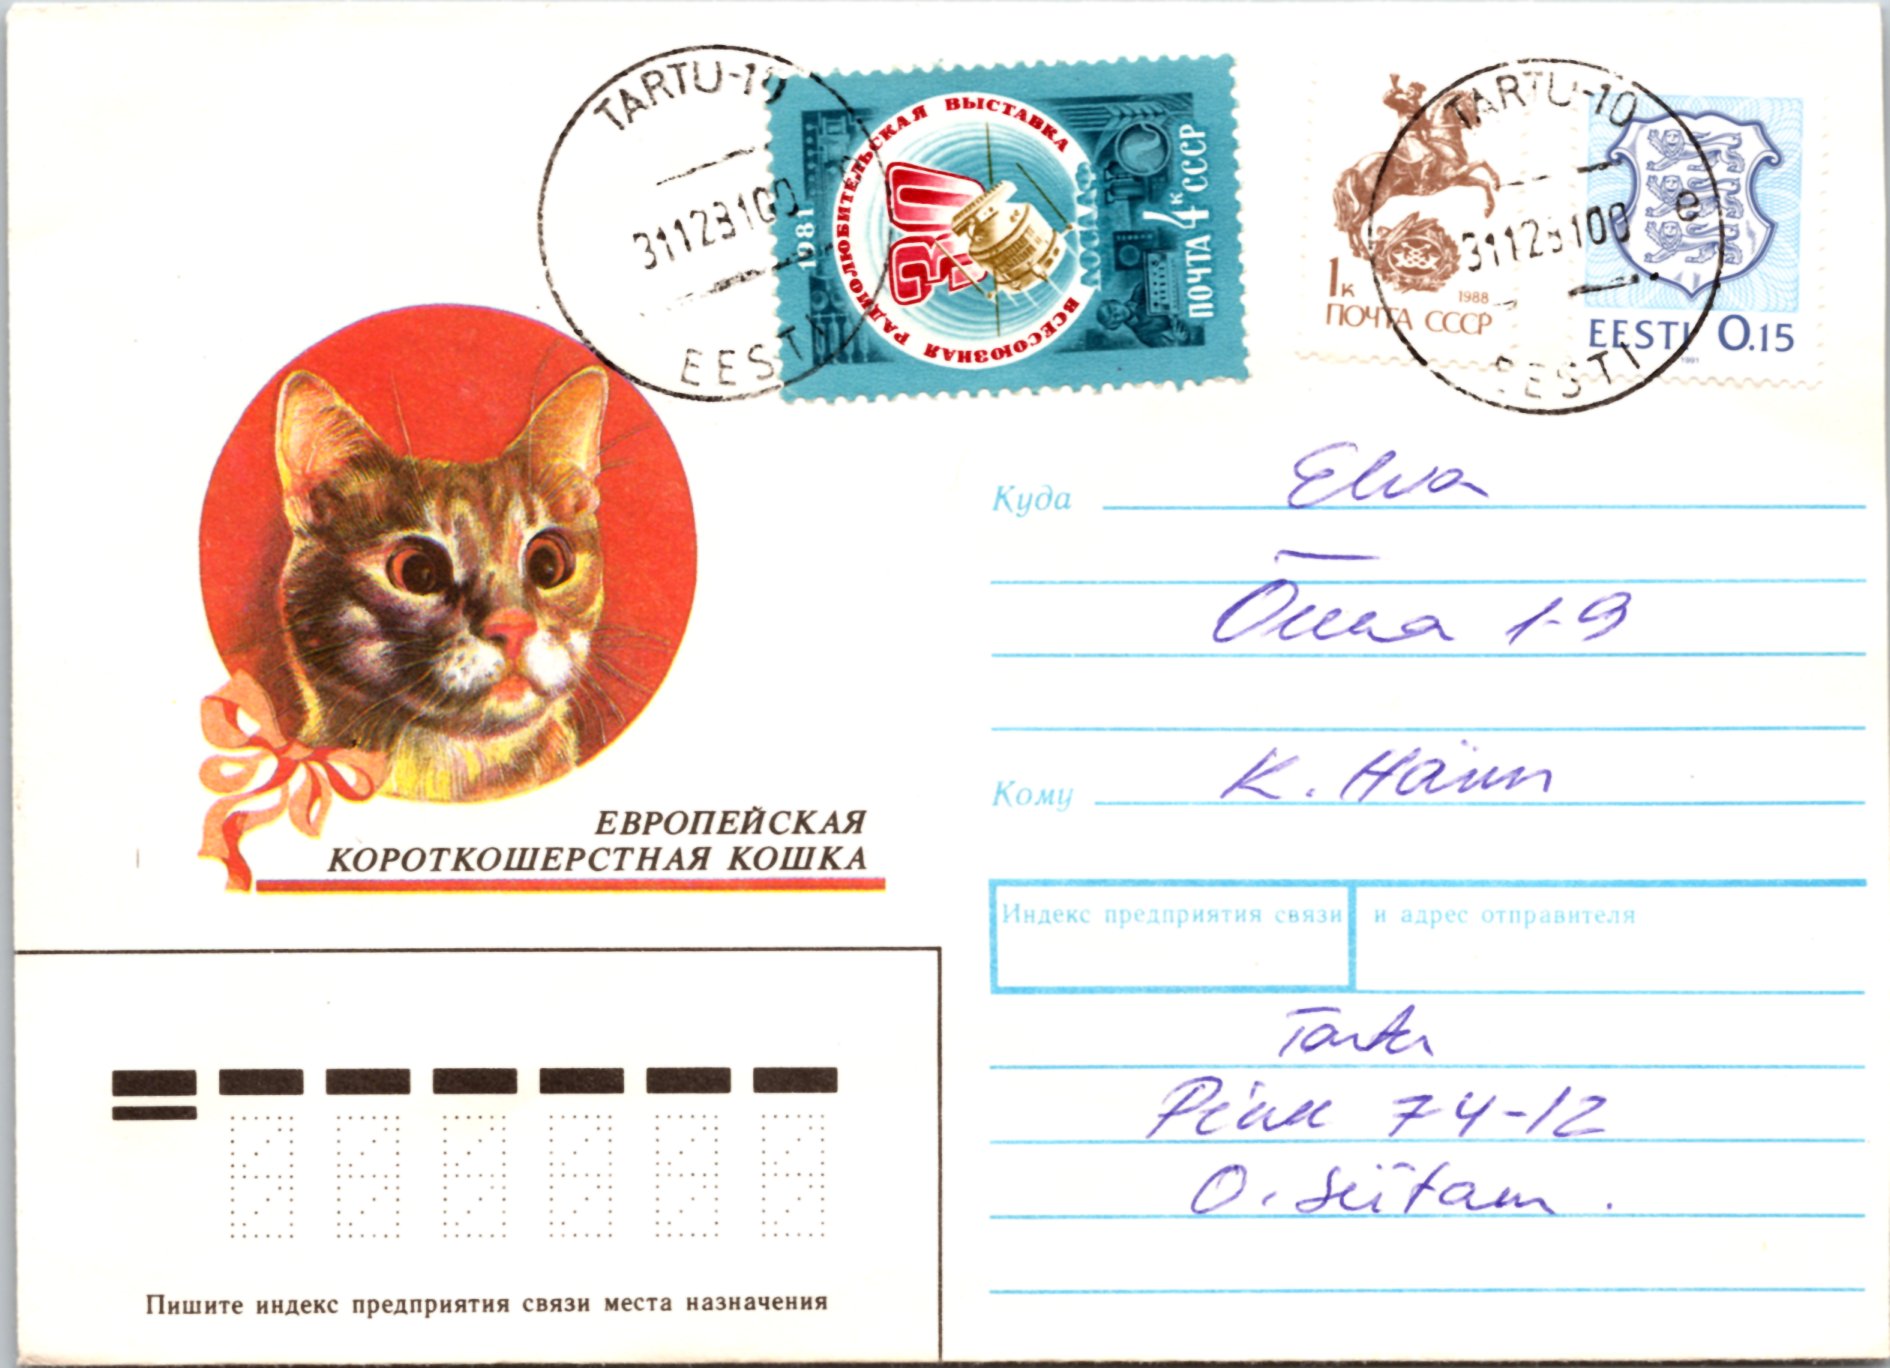 TARTU-10
311291 00
EESTI
ВСЕСОЮЗНАЯ РАДИОЛЮБИТЕЛЬСКАЯ ВЫСТАВКА
30
ДОСААФ
1981
ПОЧТА 4К СССР
1К
1988
ПОЧТА СССР
TARTU-10
311291 00
e
EESTI
EESTI 0.15
1991
ЕВРОПЕЙСКАЯ
КОРОТКОШЕРСТНАЯ КОШКА
Куда Elva
Õnna 1-9
Кому K. Hänn
Индекс предприятия связи и адрес отправителя
Tartu
74-12
O.
Пишите индекс предприятия связи места назначения